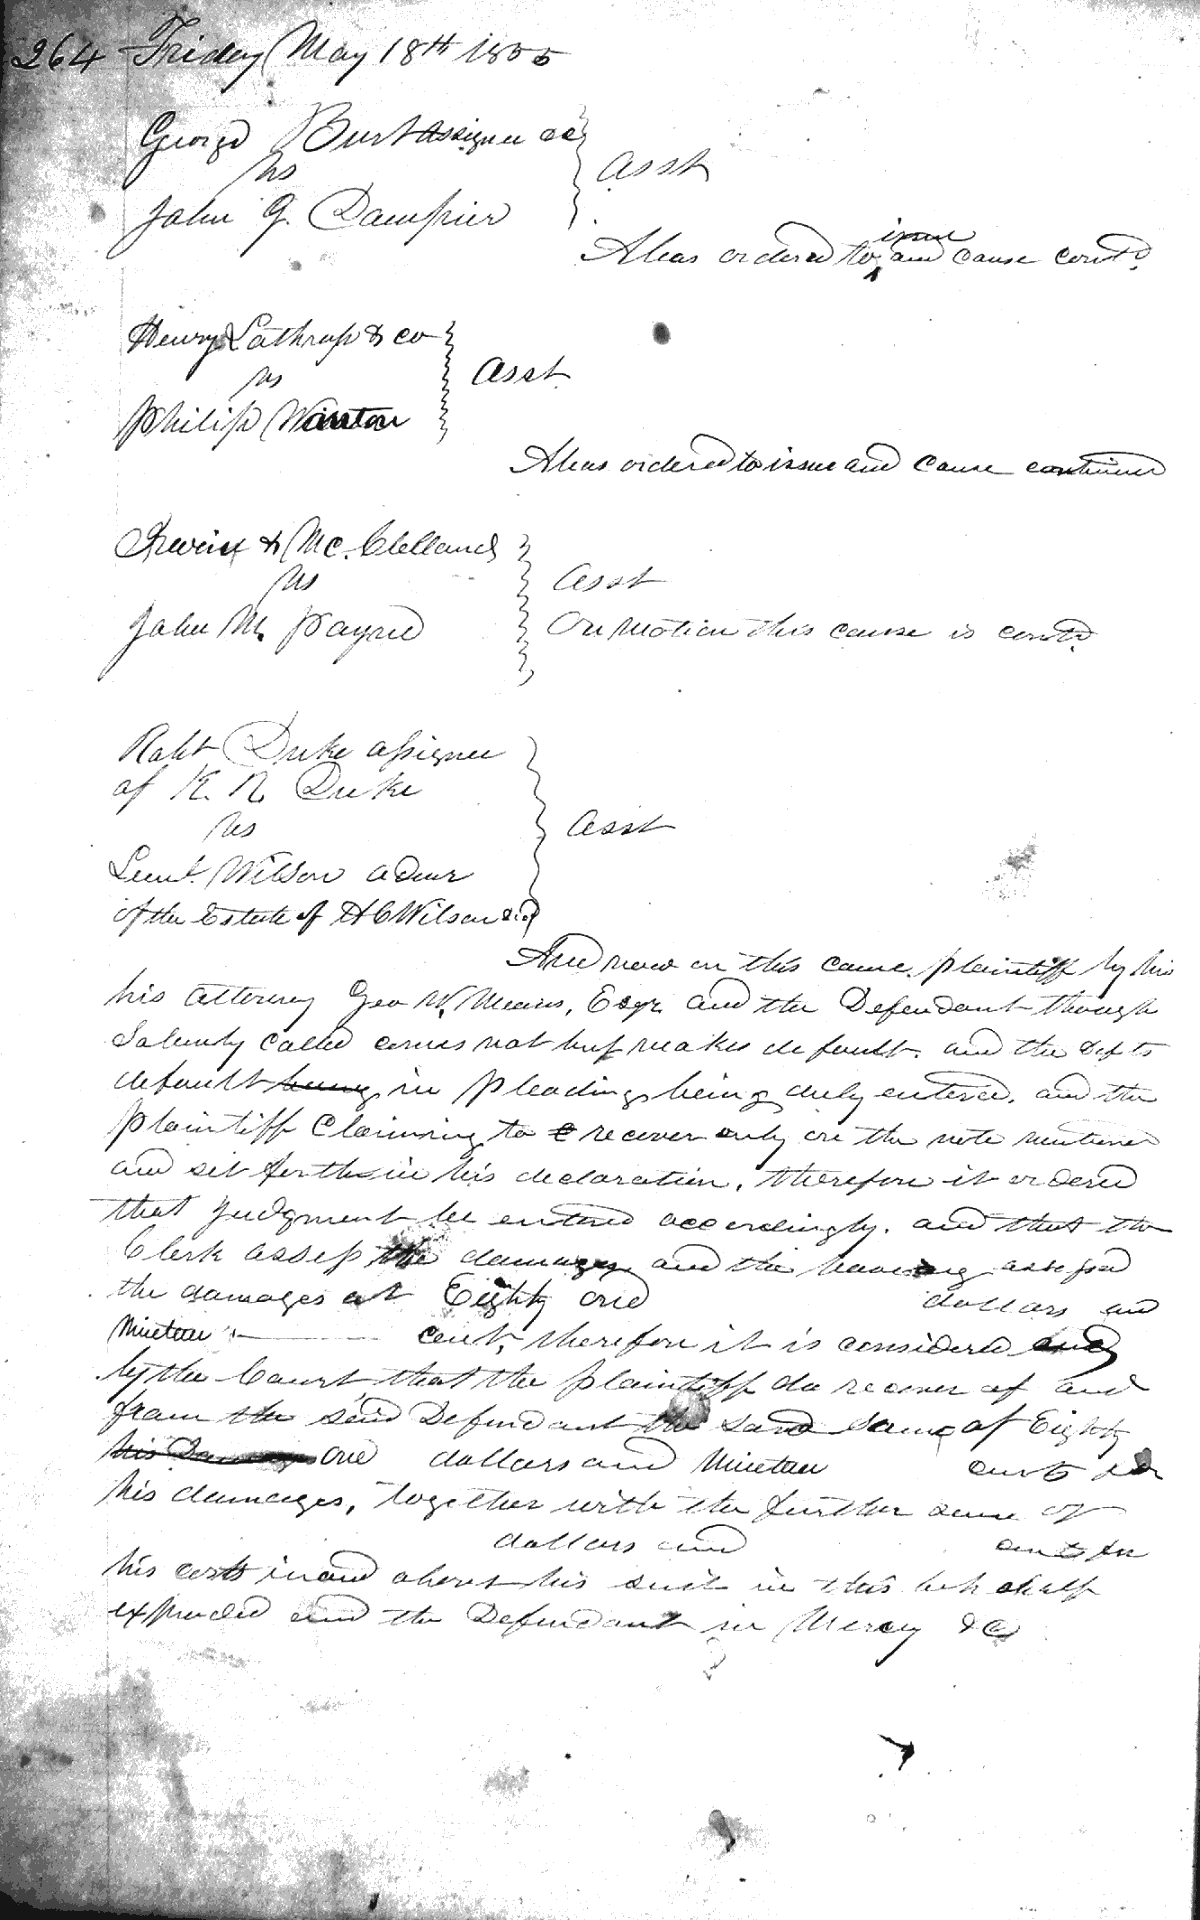 264 Friday May 18th 1855
George Burt assignee &c
vs
John G. Dampier
Asst
issue
Alias ordered to ^ and cause contd.
Henry Lathrop & co
vs
Philip
Asst.
Alias ordered to issue and cause continued
& Mc.Clelland
vs
John M. Payne
Asst
On motion this cause is contd.
Robt Duke assignee
of K. R. Duke
vs
Wilson admr
of the Estate of H C Wilson decd
Asst
And now on this cause plaintiff by his
his attorney Geo W. Means, Esqr. and the Defendant though
Solemnly called comes not but makes default. and the Defts
default being in pleadings being duly entered. and the
plaintiff Claiming to recover only on the note mentioned
and set forth in his declaration. therefore it ordered
that Judgment be entered accordingly. and that the
Clerk assess the damages and the having assessed
the damages at Eighty one dollars and
Nineteen cent, therefore it is considered
by the Court that the plaintiff do recover of and
from the said Defendant the said Sum of Eighty
his Damages one dollars and Nineteen cents for
his damages, together with the further sum of
dollars and cents for
his costs in and about his suit in this behalf
expended and the Defendant in Mercy &c